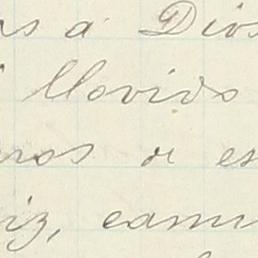 as á Dios
llovido
nos de es
iz, cami